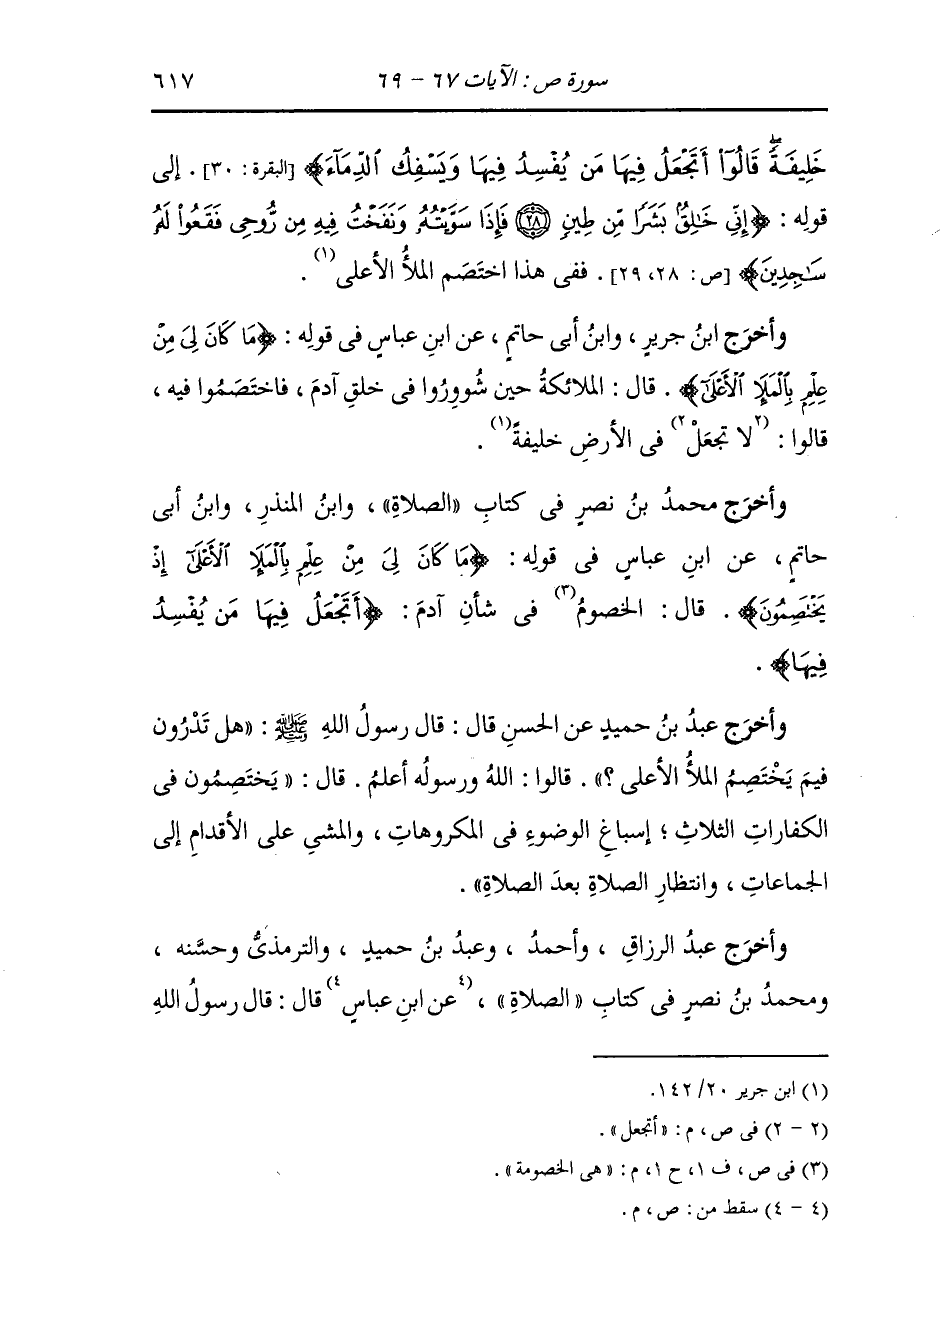 سورة ص : الآيات ٦٧ - ٦٩ ٦١٧
خَلِيفَةً قَالُوٓا۟ أَتَجْعَلُ فِيهَا مَن يُفْسِدُ فِيهَا وَيَسْفِكُ ٱلدِّمَآءَ﴾ [البقرة : ٣٠] . إلى
قولِه : ﴿إِنِّى خَٰلِقٌۢ بَشَرًا مِّن طِينٍ ﴿٢٨﴾ فَإِذَا سَوَّيْتُهُۥ وَنَفَخْتُ فِيهِ مِن رُّوحِى فَقَعُوا۟ لَهُۥ
سَٰجِدِينَ﴾ [ص : ٢٨، ٢٩] . ففى هذا اختَصَم الملأُ الأعلى(١) .
وأخرَج ابنُ جريرٍ ، وابنُ أبى حاتمٍ ، عن ابنِ عباسٍ فى قولِه : ﴿مَا كَانَ لِىَ مِنْ
عِلْمٍۭ بِٱلْمَلَإِ ٱلْأَعْلَىٰٓ﴾ . قال : الملائكةُ حين شُووِرُوا فى خلقِ آدمَ ، فاختَصَمُوا فيه ،
قالوا : (٢لا تجعَلْ٢) فى الأرضِ خليفةً(١) .
وأخرَج محمدُ بنُ نصرٍ فى كتابِ «الصلاةِ» ، وابنُ المنذرِ ، وابنُ أبى
حاتمٍ ، عن ابنِ عباسٍ فى قولِه : ﴿مَا كَانَ لِىَ مِنْ عِلْمٍۭ بِٱلْمَلَإِ ٱلْأَعْلَىٰٓ إِذْ
يَخْتَصِمُونَ﴾ . قال : الخصومُ(٣) فى شأنِ آدمَ : ﴿أَتَجْعَلُ فِيهَا مَن يُفْسِدُ
فِيهَا﴾ .
وأخرَج عبدُ بنُ حميدٍ عن الحسنِ قال : قال رسولُ اللهِ ﷺ : «هل تَدْرُون
فيمَ يَخْتَصِمُ الملأُ الأعلى ؟» . قالوا : اللهُ ورسولُه أعلمُ . قال : « يَختَصِمُون فى
الكفاراتِ الثلاثِ ؛ إسباغِ الوضوءِ فى المكروهاتِ ، والمشيِ على الأقدامِ إلى
الجماعاتِ ، وانتظارِ الصلاةِ بعدَ الصلاةِ» .
وأخرَج عبدُ الرزاقِ ، وأحمدُ ، وعبدُ بنُ حميدٍ ، والترمذىُّ وحسَّنه ،
ومحمدُ بنُ نصرٍ فى كتابِ « الصلاةِ» ، (٤عن ابنِ عباسٍ٤) قال : قال رسولُ اللهِ
(١) ابن جرير ٢٠/ ١٤٢.
(٢ - ٢) فى ص ، م : «أتجعل» .
(٣) فى ص ، ف ١، ح ١، م : «هى الخصومة» .
(٤ - ٤) سقط من : ص ، م .